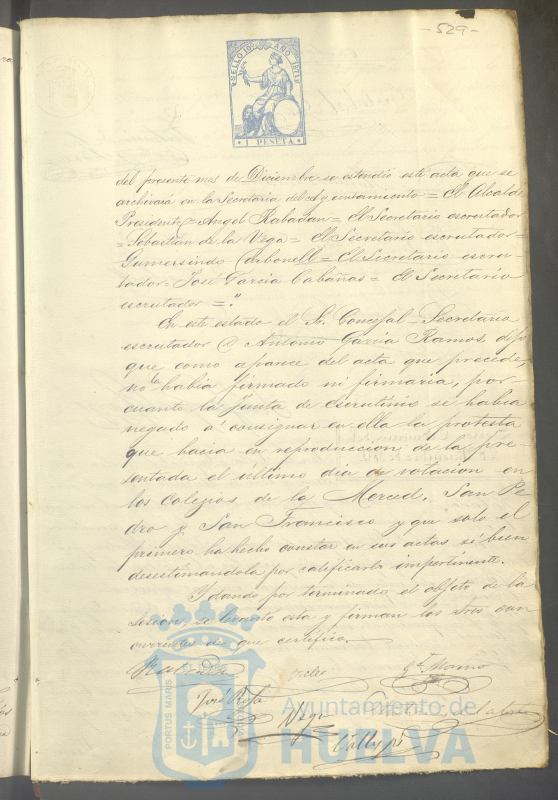 -529-
SELLO 10º AÑO 1871
1 PESETA
del presente mes de Diciembre se estendió este acta que se
archivará en la Secretaría del Ayuntamiento = El Alcalde
Presidente = Angel Rabadan = El Secretario escrutador
= Sebastian de la Vega = El Secretario escrutador =
Gumersindo Carbonell = El Secretario escru-
tador = José García Cabañas = El Secretario
escrutador =."
En este estado el Sr. Concejal - Secretario
escrutador D. Antonio Garcia Ramos, dijo
que como aparece del acta que precede,
no la habia firmado ni firmaria, por
cuanto la Junta de escrutinio se habia
negado á consignar en ella la protesta
que hacia en reproduccion de la pre-
sentada el último dia de votacion en
los Colegios de la Merced, San Pe-
dro y San Francisco y que solo el
primero ha hecho constar en sus actas si bien
desestimandola por calificarla impertinente.
Y dando por terminado el objeto de la
sesion, se levantó esta y firman los Sres con-
currentes de que certifico.
Rabadan
José
Vega
PORTUS MARIS
Ayuntamiento de
HUELVA